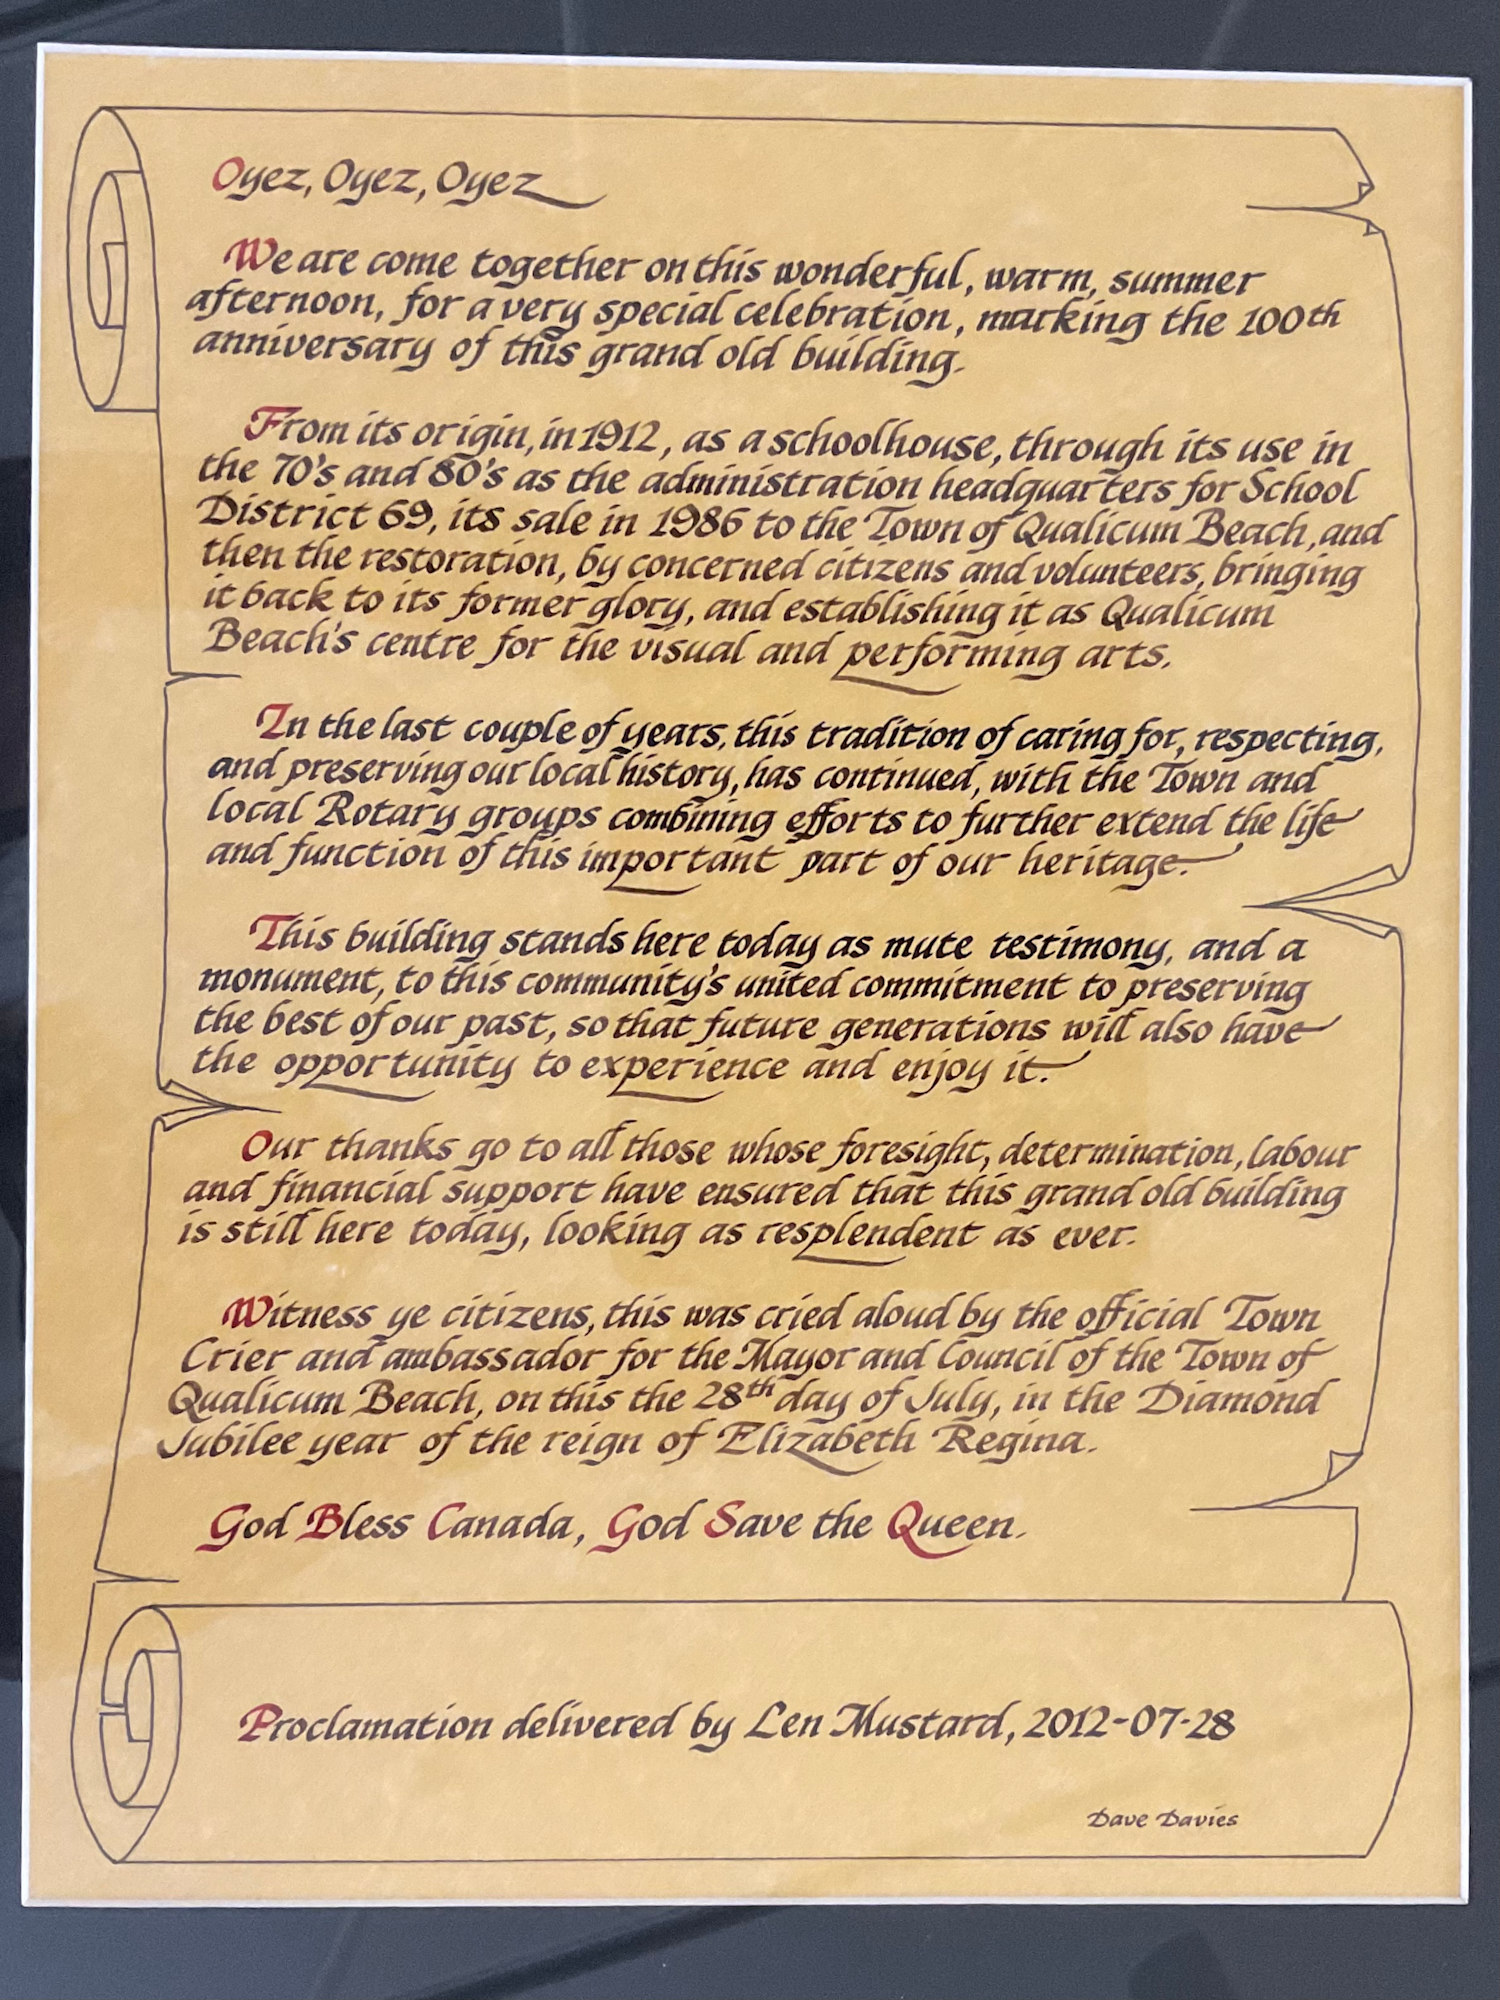 Oyez, Oyez, Oyez
We are come together on this wonderful, warm, summer
afternoon, for a very special celebration, marking the 100th
anniversary of this grand old building.
From its origin, in 1912, as a schoolhouse, through its use in
the 70's and 80's as the administration headquarters for School
District 69, its sale in 1986 to the Town of Qualicum Beach, and
then the restoration, by concerned citizens and volunteers, bringing
it back to its former glory, and establishing it as Qualicum
Beach's centre for the visual and performing arts.
In the last couple of years, this tradition of caring for, respecting,
and preserving our local history, has continued, with the Town and
local Rotary groups combining efforts to further extend the life
and function of this important part of our heritage.
This building stands here today as mute testimony, and a
monument, to this community's united commitment to preserving
the best of our past, so that future generations will also have
the opportunity to experience and enjoy it.
Our thanks go to all those whose foresight, determination, labour
and financial support have ensured that this grand old building
is still here today, looking as resplendent as ever.
Witness ye citizens, this was cried aloud by the official Town
Crier and ambassador for the Mayor and Council of the Town of
Qualicum Beach, on this the 28th day of July, in the Diamond
Jubilee year of the reign of Elizabeth Regina.
God Bless Canada, God Save the Queen.
Proclamation delivered by Len Mustard, 2012-07-28
Dave Davies